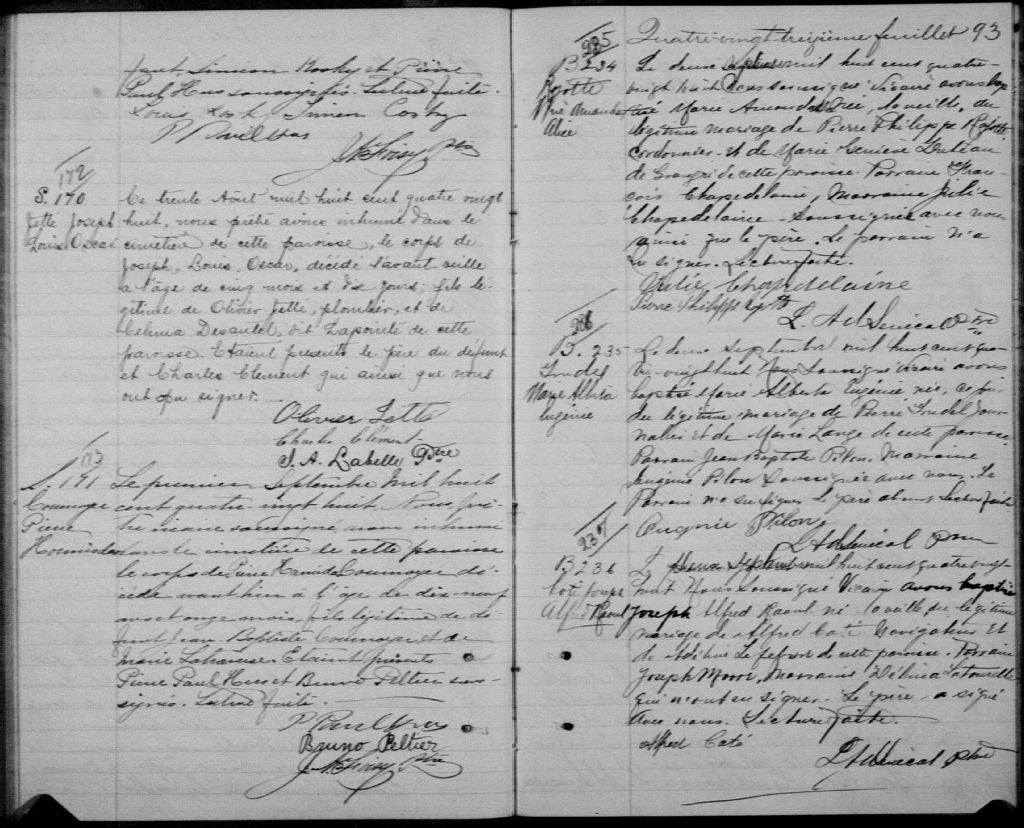 font. Simeon Kosky et Pierre
Paul Hus soussignés. Lecture faite.
Louis Kosk Simeon Cosky
P Paul Hus
Ptre
172
S. 170
Jetté Joseph
Louis Oscar
Ce trente Août mil huit cent quatre vingt
huit, nous prêtre avons inhumé dans le
cimetière de cette paroisse, le corps de
Joseph, Louis, Oscar, décédé l'avant-veille
a l'âge de cinq mois et dix jours, fils lé-
gitime de Olivier Jetté, plombier, et de
Celina Desautel, dit Lapointe de cette
paroisse. Etaient presents le père du défunt
et Charles Clement qui ainsi que nous
ont pu signer.
Olivier Jetté
Charles Clément
J. A. Labelle Ptre
173
S. 171
Cournoyer
Pierre
Hormisdas
Le premier Septembre Mil huit
cent quatre-vingt huit. Nous prê-
tre vicaire soussigné avons inhumé
dans le cimetière de cette paroisse
le corps de Pierre Cournoyer dé-
cédé avant hier à l'âge de dix-neuf
ans et onze mois, fils légitime de dé-
funt Jean Baptiste Cournoyer et de
Marie. Etaient présents
Pierre Paul Hus et Bruno Peltier sous-
signés. Lecture faite.
P Paul Hus
Bruno Peltier
Ptre
Quatre-vingt-treizième feuillet 93
235
B 234
Marie Amanda
Alice
Le deux mil huit cent quatre-
vingt huit Nous soussigné Vicaire avons bap-
tisé Marie Amanda née la veille, du
légitime mariage de Pierre Philippe
cordonnier et de Marie
de cette paroisse. Parrain Fran-
çois Chapdelaine, Marraine Julie
Chapdelaine soussignée avec nous
ainsi que le père. Le parrain n'a
su signer. Lecture faite.
Julie Chapdelaine
Pierre Philippe
L. Ad Senécal Ptre
236
B. 235
Trudel
Marie Alberta
Eugénie
Le deux Septembre mil huit cent qua-
tre-vingt huit Nous Soussigné Vicaire avons
baptisé Marie Alberta Eugénie, née
du légitime mariage de Pierre Trudel Jour-
nalier et de Marie Lange de cette paroisse
Parrain Jean Baptiste Pilon. Marraine
Eugénie Pilon Soussignée avec nous. Le
Parrain n'a su signer. Le père absent. Lecture faite
Eugnie Pilon
L Ad Senécal Ptre
237
B 236
Coté Joseph
Alfred Raoul
Le Deux Septembre mil huit cent quatre vingt
huit Nous Soussigné Vicaire avons baptisé
Joseph Alfred Raoul né la veille du légitime
mariage de Alfred Coté Navigateur et
de Lefebvre de cette paroisse. Parrain
Joseph, Marraine Délima Latourelle
qui n'ont su signer. Le père a signé
avec nous. Lecture faite.
Alfred Coté
L Ad Senécal Ptre